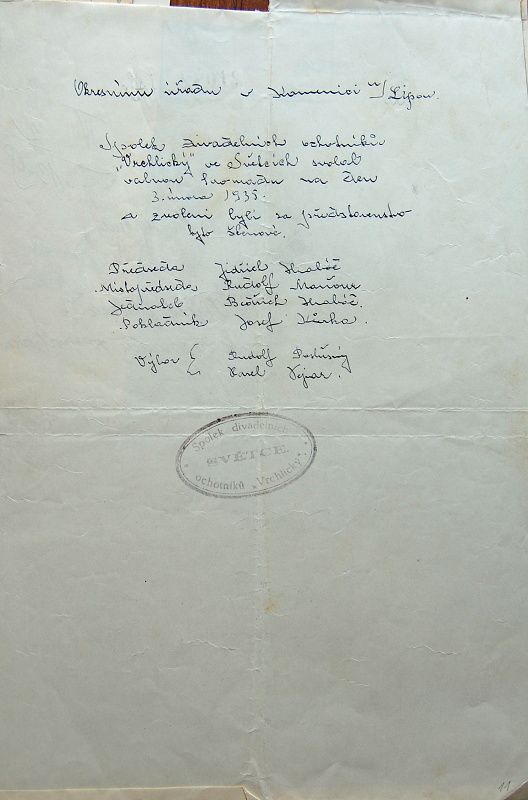 Okresnímu úřadu v Kamenici n/Lipou.
Spolek divadelních ochotníků
"Vrchlický" ve Světcích svolal
valnou hromadu na den
3. února 1935.
a zvoleni byli za představenstvo
tyto členové.
Předseda Jidřich Hraběč
Mistopředseda Rudolf
Jednatel Bedřich Hraběč.
Pokladník Josef Kůrka.
Výbor { Rudolf
Karel Vejvar.
Spolek divadelních
SVĚTCE
ochotníků „Vrchlický".
11